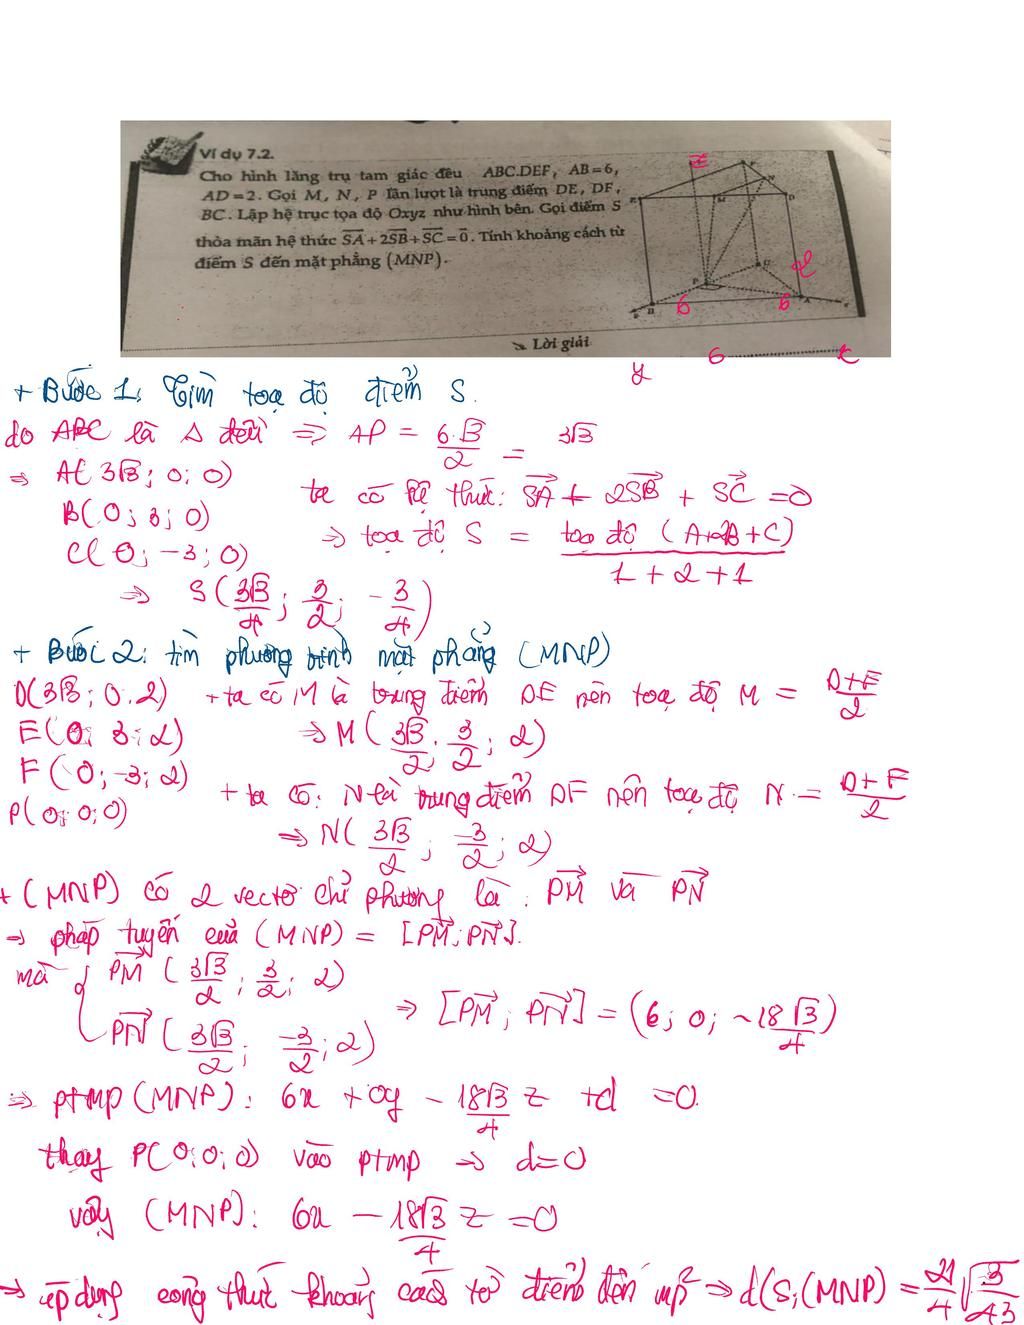 Ví dụ 7.2.
Cho hình lăng trụ tam giác đều ABC.DEF, AB=6,
AD=2. Gọi M, N, P lần lượt là trung điểm DE, DF,
BC. Lập hệ trục tọa độ Oxyz như hình bên. Gọi điểm S
thỏa mãn hệ thức SA+2SB+SC=0. Tính khoảng cách từ
điểm S đến mặt phẳng (MNP).
z
E
M
N
D
2
P
C
6
6
B
A
Lời giải
y
6
x
+ Bước 1: Tìm toạ độ điểm S.
do ABC là Δ đều ⇒ AP = 6.√3/2 = 3√3
⇒ A(3√3; 0; 0)
B(0; 3; 0)
C(0; -3; 0)
ta có hệ thức: SA + 2SB + SC = 0
⇒ toạ độ S = toạ độ (A+2B+C)/1+2+1
⇒ S(3√3/4; 3/2; -3/4)
+ Bước 2: tìm phương trình mặt phẳng (MNP)
D(3√3; 0; 2)
E(0; 3; 2)
F(0; -3; 2)
P(0; 0; 0)
+ ta có M là trung điểm DE nên toạ độ M = D+E/2
⇒ M(3√3/2; 3/2; 2)
+ ta có: N là trung điểm DF nên toạ độ N = D+F/2
⇒ N(3√3/2; -3/2; 2)
+ (MNP) có 2 vectơ chỉ phương là: PM và PN
⇒ pháp tuyến của (MNP) = [PM; PN].
mà { PM (3√3/2; 3/2; 2)
PN (3√3/2; -3/2; 2)
⇒ [PM; PN] = (6; 0; -18√3/4)
⇒ ptmp (MNP): 6x + 0y - 18√3/4 z + d = 0.
thay P(0; 0; 0) vào ptmp ⇒ d=0
vậy (MNP): 6x - 18√3/4 z = 0
⇒ áp dụng công thức khoảng cách từ điểm đến mp ⇒ d(S;(MNP) = 21/4 √3/43